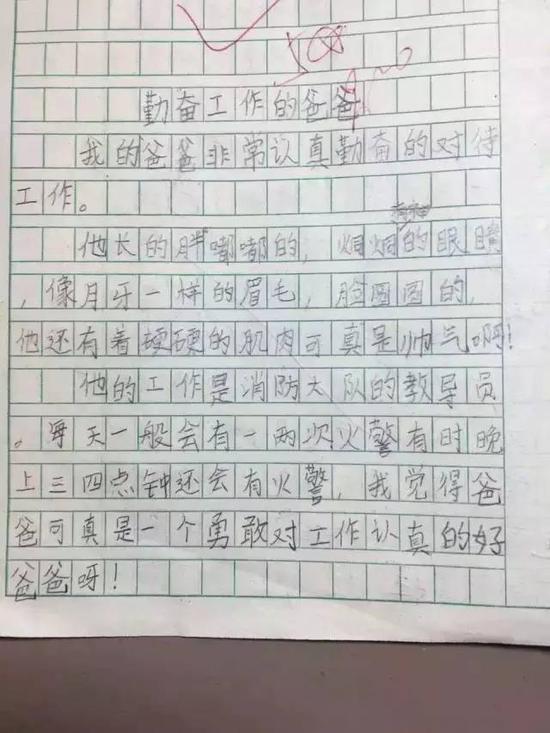 勤奋工作的爸爸
我的爸爸非常认真勤奋的对待
工作。
他长的胖嘟嘟的，炯炯的眼睛
，像月牙一样的眉毛，脸圆圆的，
他还有着硬硬的肌肉可真是帅气啊！
他的工作是消防大队的教导员
。每天一般会有一两次火警有时晚
上三四点钟还会有火警，我觉得爸
爸可真是一个勇敢对工作认真的好
爸爸呀！